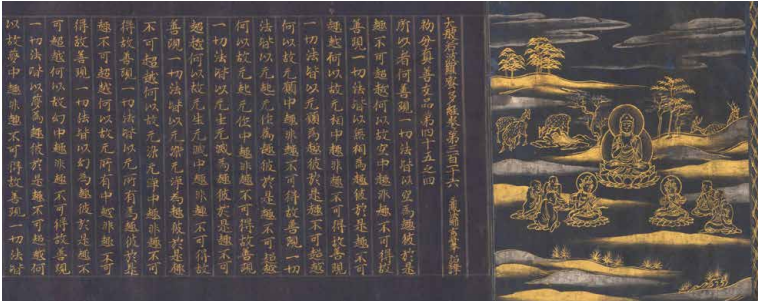 大般若波羅蜜多經卷第三百一十六
初分真善友品第四十五之四
所以者何善現一切法皆以空為趣彼於是
趣不可超越何以故空中趣非趣不可得故
善現一切法皆以無相為趣彼於是趣不可
超越何以故无相中趣非趣不可得故善現
一切法皆以无願為趣彼於是趣不可超越
何以故无願中趣非趣不可得故善現一切
法皆以无起无作為趣彼於是趣不可超越
何以故无起无作中趣非趣不可得故善現
一切法皆以无生无滅為趣彼於是趣不可
超越何以故无生无滅中趣非趣不可得故
善現一切法皆以无染无淨為趣彼於是趣
不可超越何以故无染无淨中趣非趣不可
得故善現一切法皆以无所有為趣彼於是
趣不可超越何以故无所有中趣非趣不可
得故善現一切法皆以幻為趣彼於是趣不
可超越何以故幻中趣非趣不可得故善現
一切法皆以夢為趣彼於是趣不可超越何
以故夢中趣非趣不可得故善現一切法皆